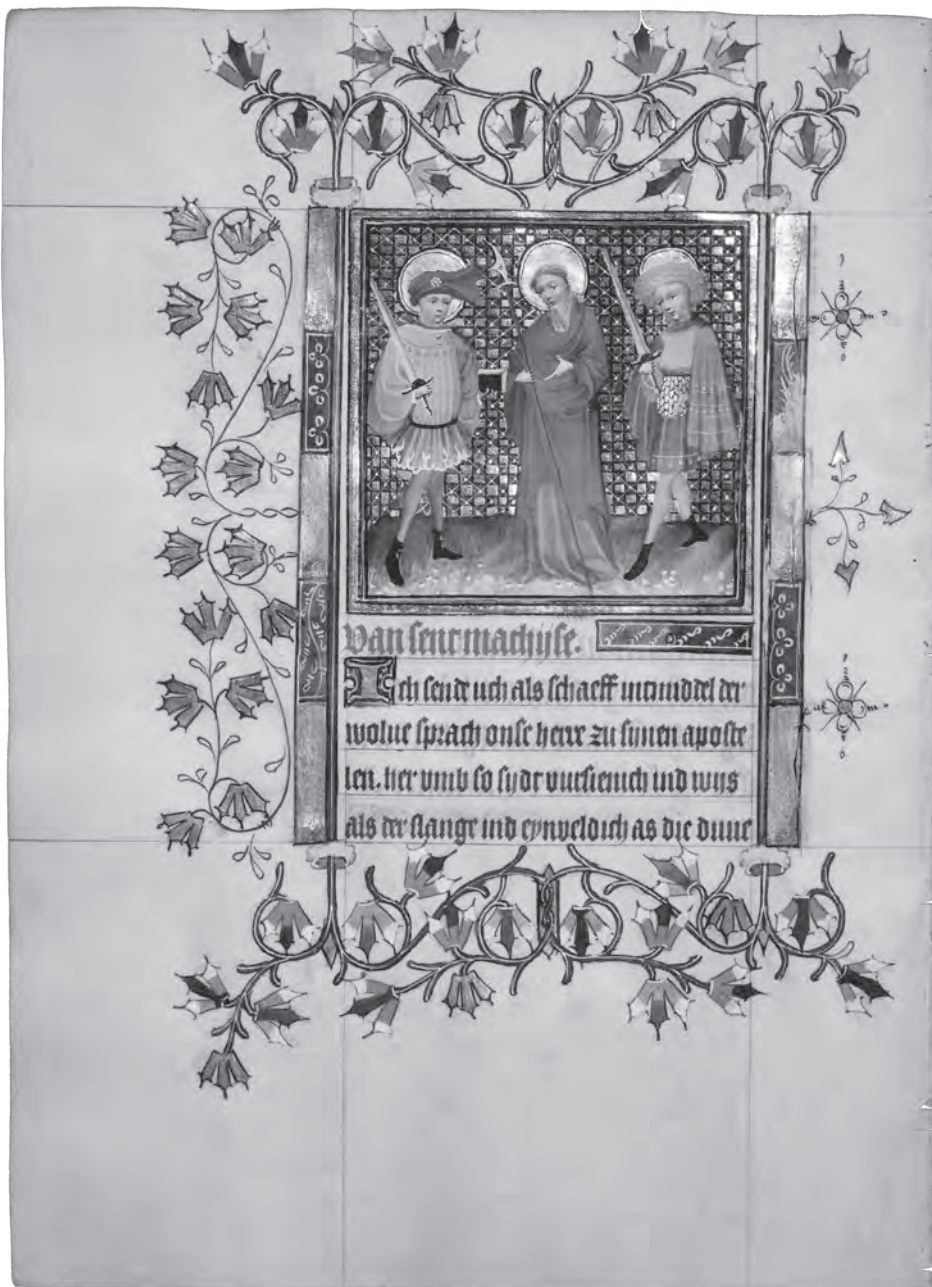 Van sent mathijse.
Ich sende uch als schaeff inmiddel der
wolue sprach onse herre zu synen aposte
len. her vmb so sydt vursienich ind wijs
als der slange ind eynveldich as die duue